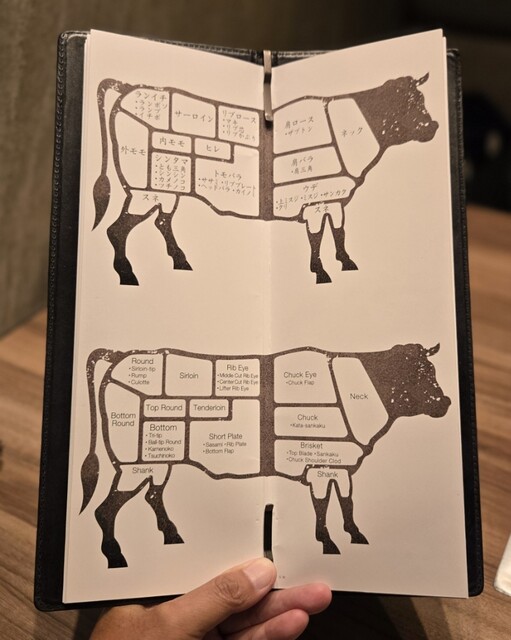 ランイチ
・ランボソ
・ランプ
・イチボ
サーロイン
リブロース
・マキ
・リブ芯
・リブかぶり
肩ロース
・ザブトン
ネック
外モモ
内モモ
ヒレ
シンタマ
・とも三角
・シンシン
・カメノコ
・ツチノコ
トモバラ
・ササミ ・リブプレート
・ヘッドバラ ・カイノミ
肩バラ
・肩三角
ウデ
・トミスジ ・ミスジ ・サンカク
・クリ
スネ
スネ
Round
•Sirloin-tip
•Rump
•Culotte
Sirloin
Rib Eye
•Middle Cut Rib Eye
•Center Cut Rib Eye
•Lifter Rib Eye
Chuck Eye
•Chuck Flap
Neck
Bottom
Round
Top Round
Tenderloin
Bottom
•Tri-tip
•Ball-tip Round
•Kamenoko
•Tsuchinoko
Short Plate
•Sasami •Rib Plate
•Bottom Flap
Chuck
•Kata-sankaku
Brisket
•Top Blade •Sankaku
•Chuck Shoulder Clod
Shank
Shank